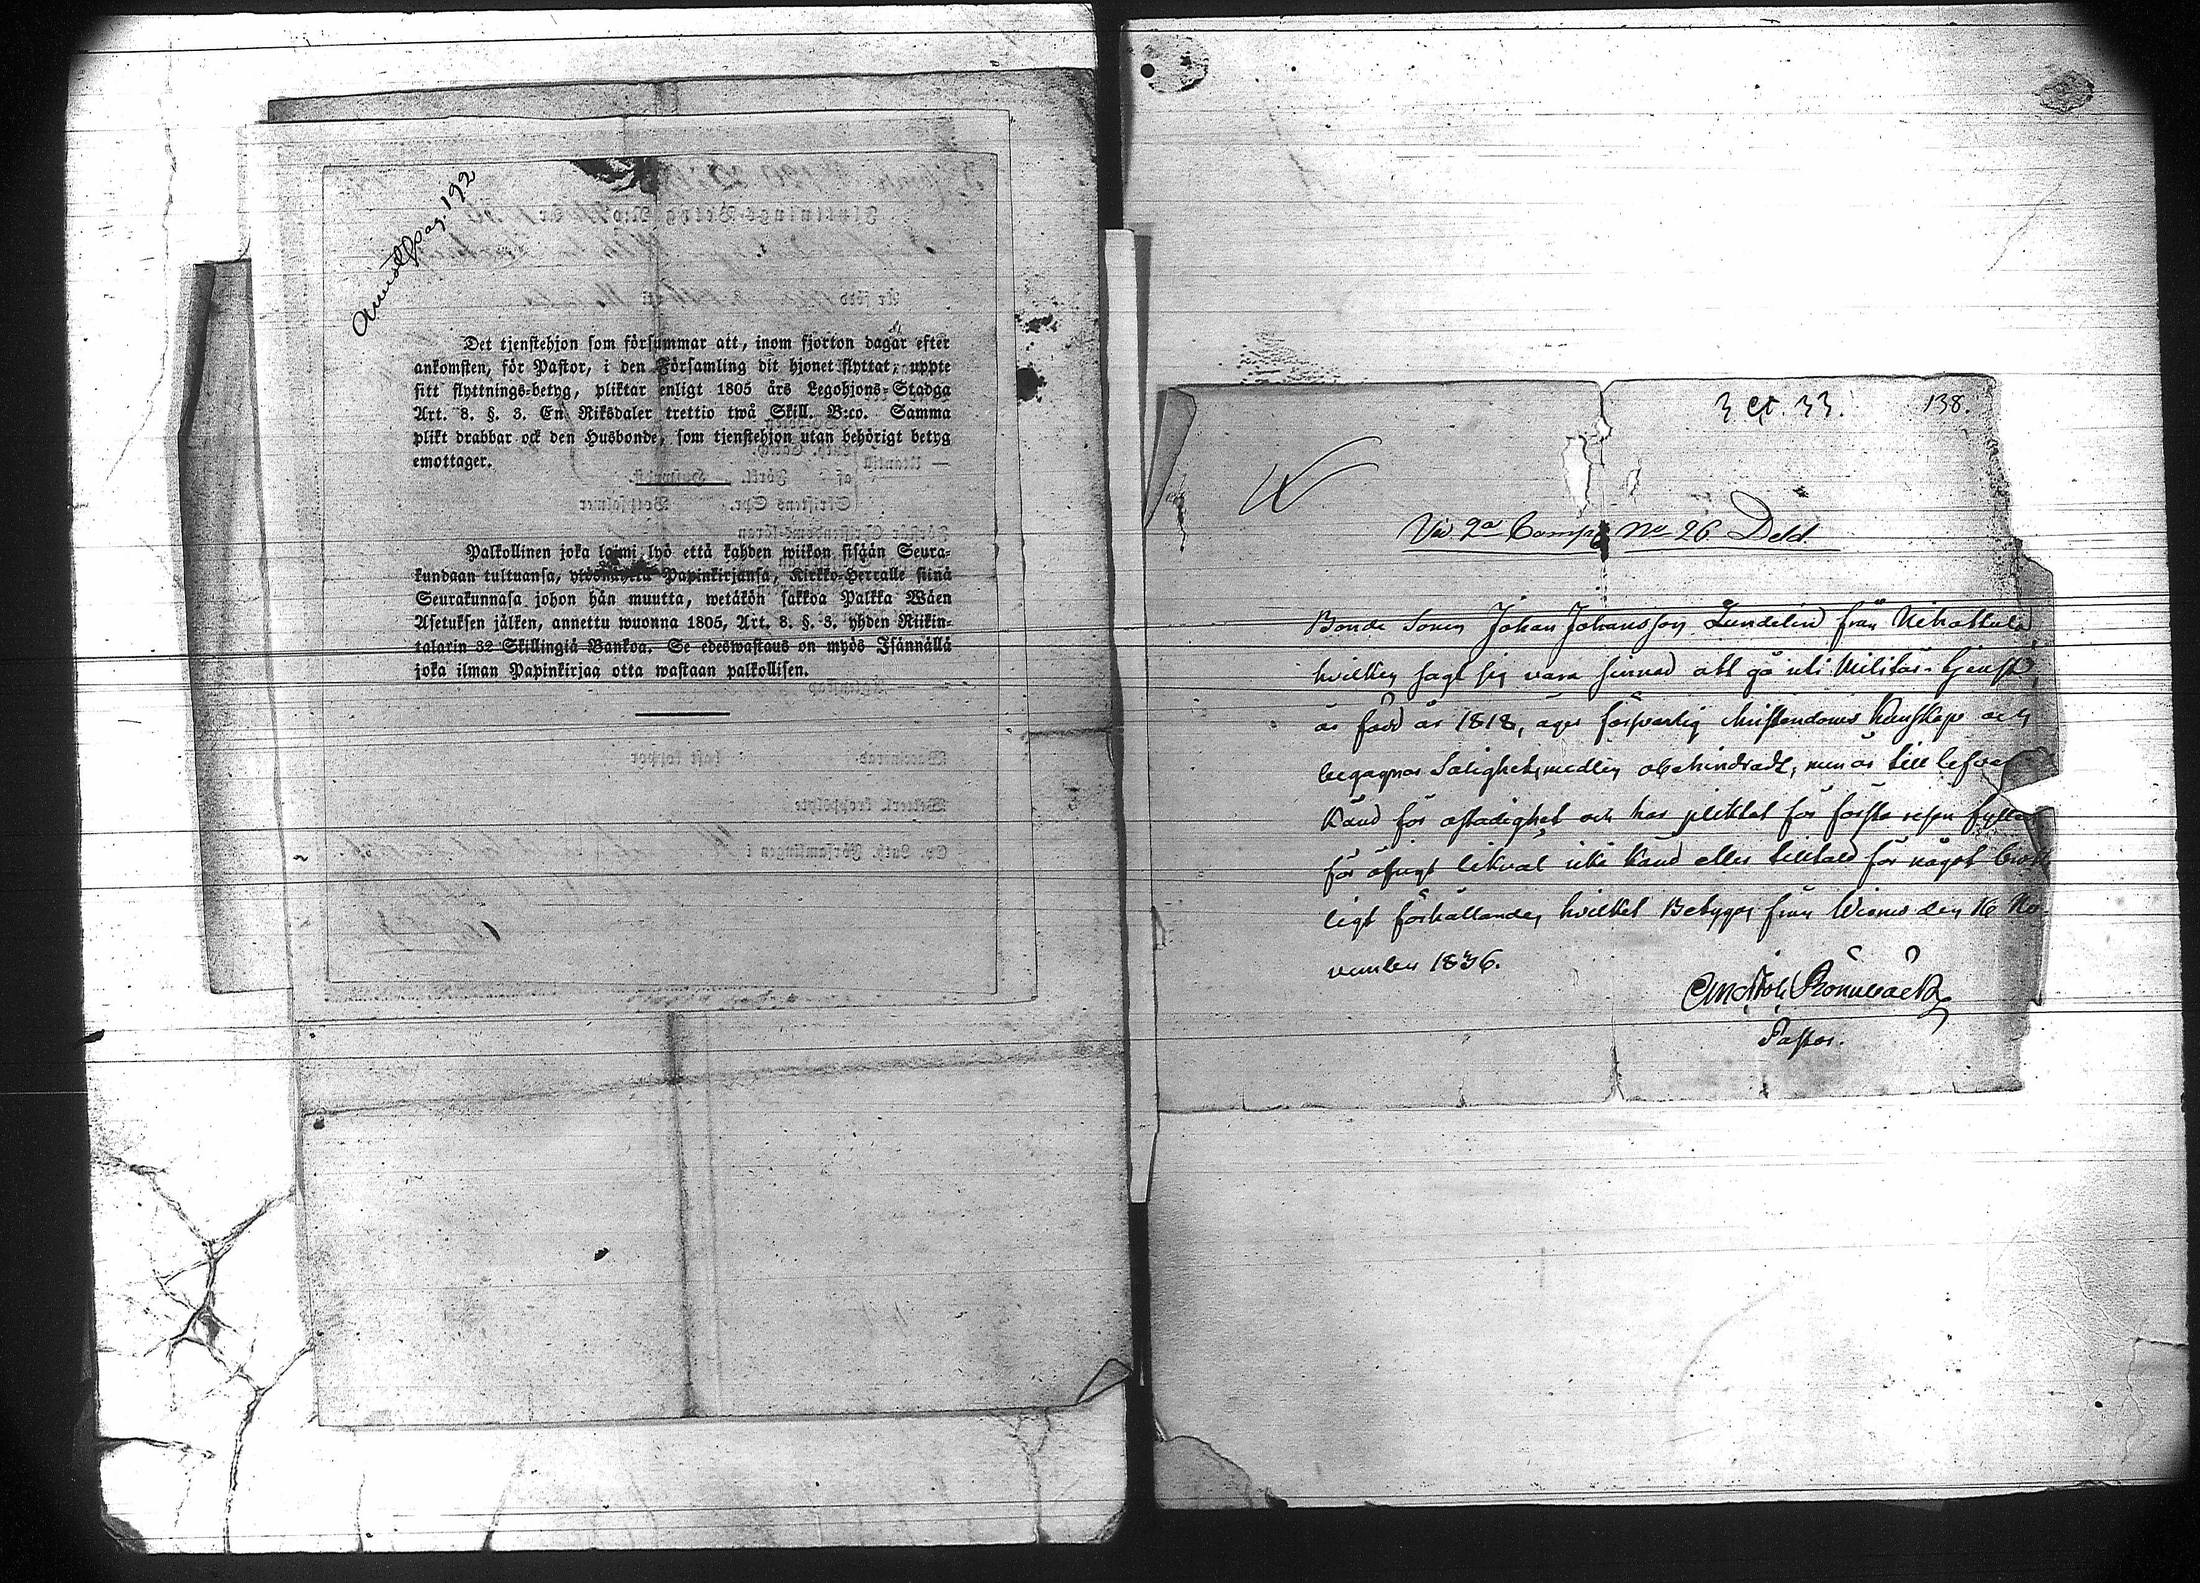 Annot. pag. 192
Det tjenstehjon som försummar att, inom fjorton dagar efter
ankomsten, för Pastor, i den Församling dit hjonet flyttat, uppte
sitt flyttnings-betyg, pliktar enligt 1805 års Legohjons-Stadga
Art. 8. §. 3. En Riksdaler trettio twå Skill. B:co. Samma
plikt drabbar ock den Husbonde, som tjenstehjon utan behörigt betyg
emottager.
Palkollinen joka laimi lyö että kahden wiikon sisään Seura-
kundaan tultuansa, Papinkirjansa, Kirkko-Herralle siinä
Seurakunnasa johon hän muutta, wetäkön sakkoa Palkka Wäen
Asetuksen jälken, annettu wuonna 1805, Art. 8. §. 3. yhden Riikin-
talarin 32 Skillingiä Bankoa. Se edeswastaus on myös Isännällä
joka ilman Papinkirjaa otta wastaan palkollisen.
3 Ct. 33. 138.
Vid 2a Comp No 26 Deld.
Bonde Sonen Johan Johansson Lundelin från
hvilken sagt sig vara sinnad att gå uti Militär-tjenst,
är född år 1818, äger försvarlig Christendoms Kunskap och
begagnar Salighetsmedlen obehindradt, men är till lefver
Känd för ostadighet och har pliktat för första resan fylleri
för öfrigt likväl icke känd eller tilltald för något brott
ligt förhållande, hvilket Betygas från Wiemo den 16 No-
vember 1836.
Rönnbäck
Pastor.